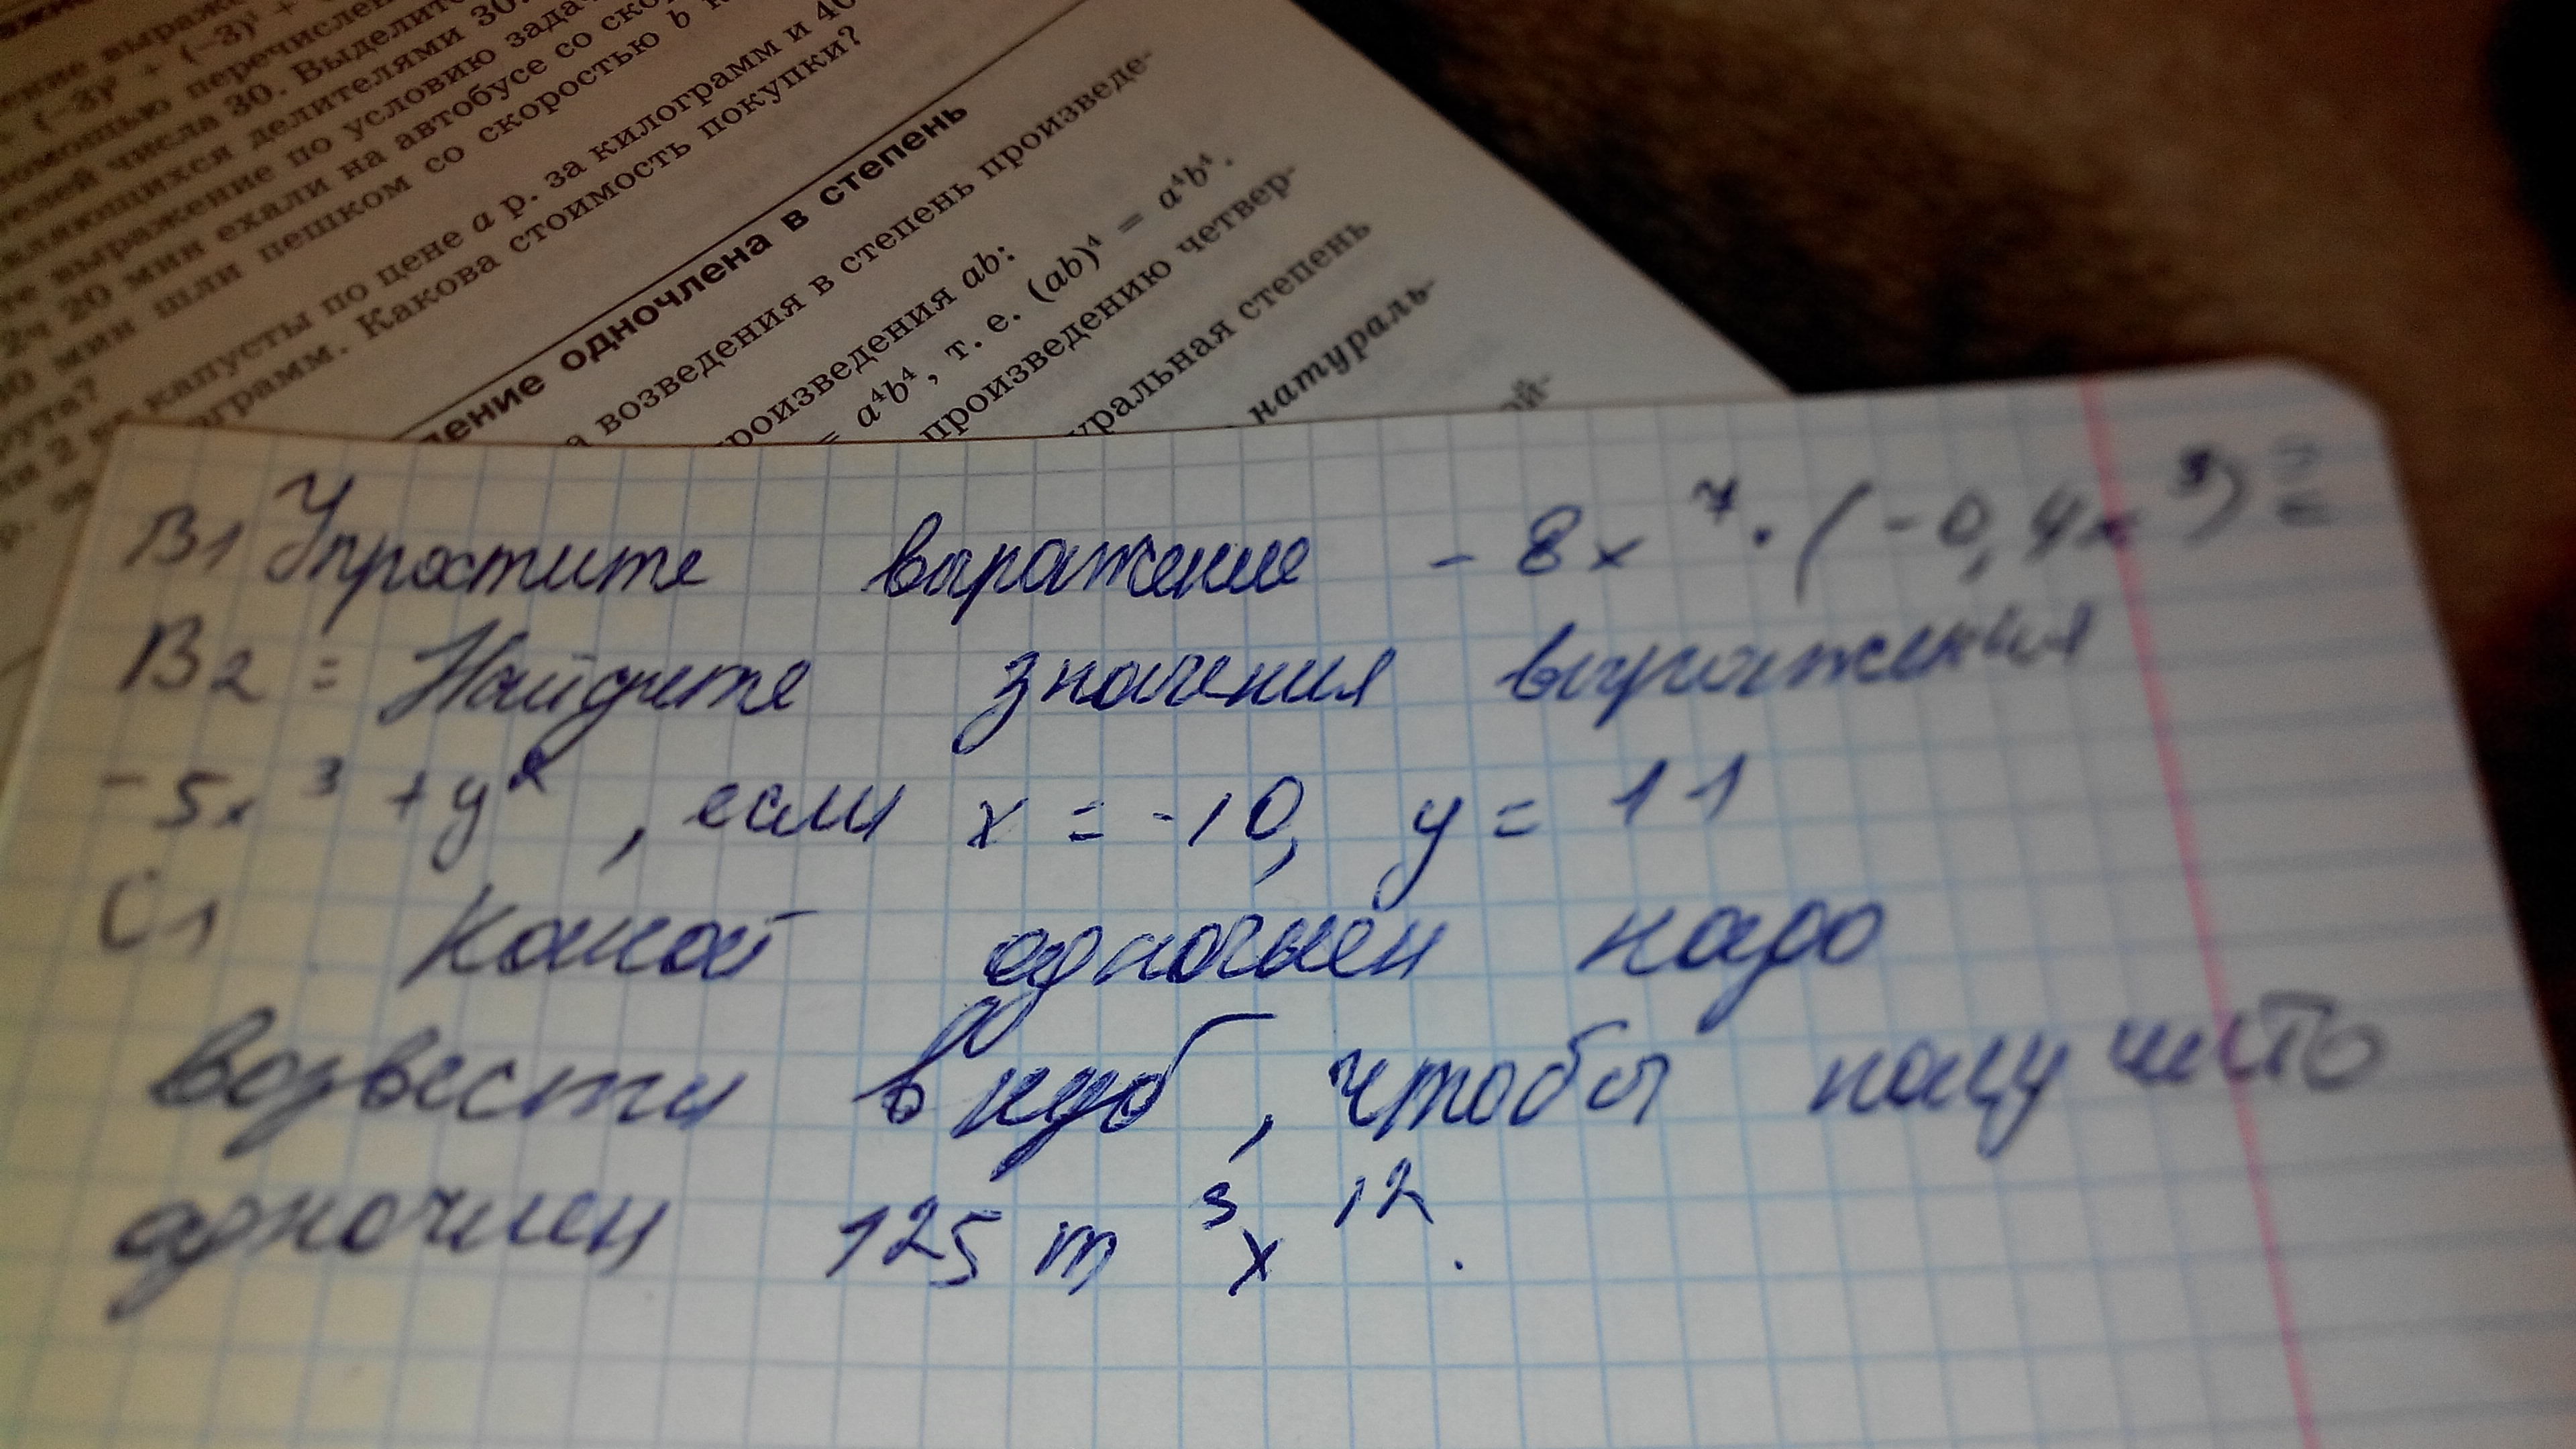 (−3)² + (−3)³ +
помощью перечислен
телей числа 30. Выделите
вляющихся делителями 30.
те выражение по условию задач
2ч 20 мин ехали на автобусе со ско
40 мин шли пешком со скоростью b к
рута?
капусты по цене a р. за килограмм и 40
ограмм. Какова стоимость покупки?
дение одночлена в степень
а возведения в степень произведе-
произведения ab:
= a⁴b⁴, т. е. (ab)⁴ = a⁴b⁴.
произведению четвер-
уральная степень
натураль-
ой-
B1 Упростите выражение - 8x⁷ · (-0,4x³) =
B2 = Найдите значения выражения
-5x³ + y², если x = -10, y = 11
C1 Какой одночлен надо
возвести в куб, чтобы получить
одночлен 125 m³x¹².